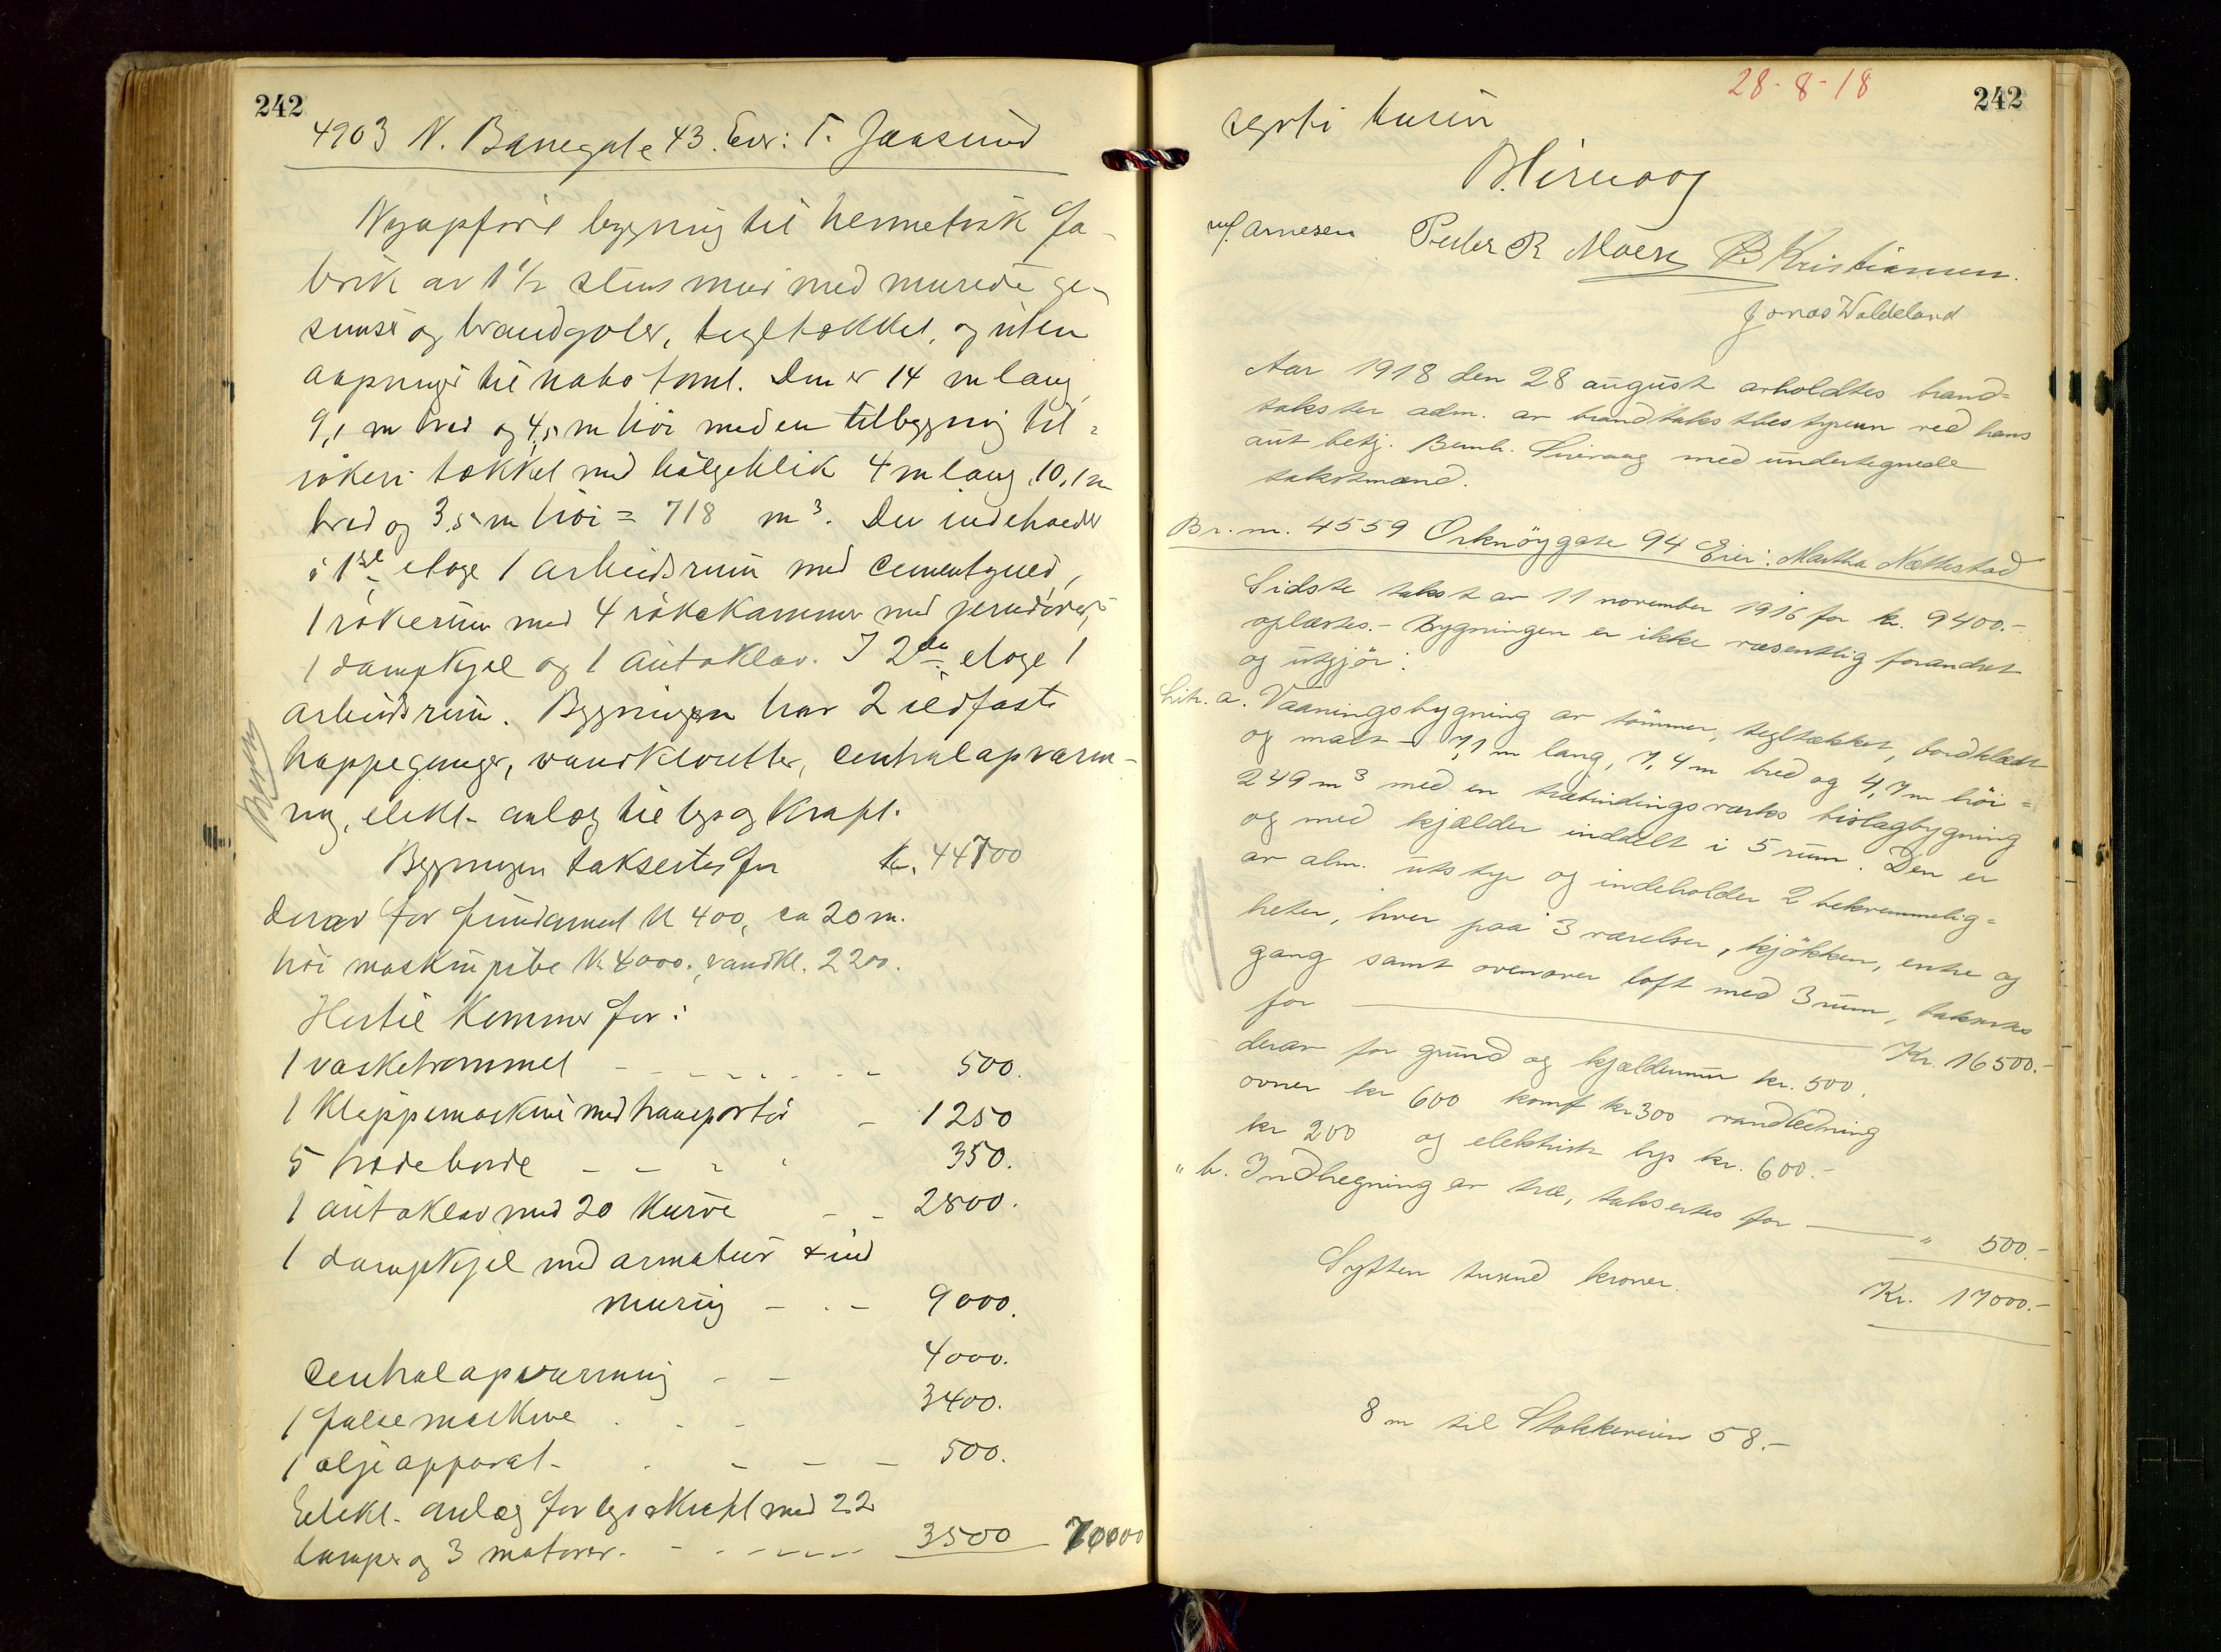 242
4903 N. Banegate 43. Eier: T. Jaasund
Nyopført bygning til hermetikk fa-
brik av 1 1/2 stens mur med murede ge-
simser og brandgavler, tegltækket, og uten
aapninger til nabotomt. Den er 14 m lang
9,1 m bred og 4,5 m høi med en tilbygning til
røkeri tækket med bølgeblik 4 m lang, 10,1 m
bred og 3,5 m høi = 718 m³. Den indeholder
i 1ste etage 1 arbeidsrum med cementgulv,
1 røkerum med 4 røkekammer med jerndører,
1 dampkjel og 1 autoklav. I 2den etage 1
arbeidsrum. Bygningen har 2 ildfaste
trappeganger, vandklosetter, centralopvarm-
ning, elekt. anlæg til lys og kraft.
Bygningen taksertes for kr. 44700
derav for fundament kr 400, ca 20 m.
høi maskinpibe kr 4000., vandkl. 2200.
Hertil kommer for:
1 vasketrommel - - - 500.
1 Klippemaskine med transportør - 1250
5 træde borde - - - 350.
1 autoklav med 20 kurve - - 2800.
1 dampkjel med armatur & ind
muring - - - 9000.
Centralopvarming - - 4000.
1 falsemaskine - - 3400.
1 oljeapparat - - - 500.
Elekt. anlæg for lys & kraft med 22
lamper og 3 motorer. - - - 3500 70000
28-8-18
242
sytti tusen
B. Sirevaag
M. Arnesen Peder R Moen B Kristiansen.
Jonas Waldeland
Aar 1918 den 28 august avholdtes brand-
takster adm. av brandtakstbestyreren ved hans
aut betj. Bernh. Sirevaag med undertegnede
takstmænd.
Br. nr. 4559 Orknøygate 94 Eier: Martha Nættestad
Sidste takst av 11 november 1916 for kr. 9400.-
oplæstes.- Bygningen er ikke væsentlig forandret
og utgjør:
Litr. a. Vaaningsbygning av tømmer, tegltækket, bordklædt
og malt - 7,1 m lang, 7,4 m bred og 4,7 m høi =
249 m³ med en træbindingsværks bislagbygning
og med kjælder inddelt i 5 rum. Den er
av alm. utstyr og indeholder 2 bekvemmelig-
heter, hver paa 3 værelser, kjøkken, entre og
gang samt ovenover loft med 3 rum, takseres
for Kr. 16500.-
derav for grund og kjælderrum kr. 500,
ovner kr 600 komf kr 300 vandledning
kr 200 og elektrisk lys kr. 600.-
" b. Indhegning av træ, taksertes for " 500.-
Sytten tusind kroner. Kr. 17000.-
8 m til Stokkaveien 58.-